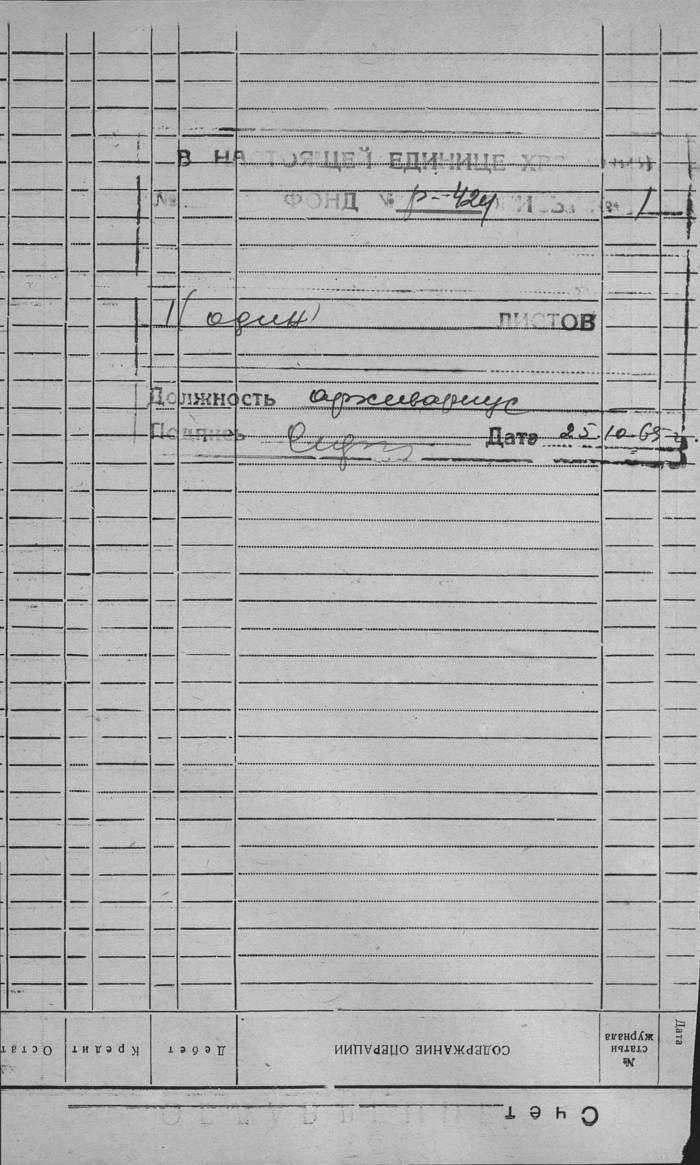 В НАСТОЯЩЕЙ ЕДИНИЦЕ
№ ФОНД № Р-424 1
1 (один) ЛИСТОВ
Должность архивариус
Подпись Дата 25.10.65 г.
Дата
№ статьи журнала
СОДЕРЖАНИЕ ОПЕРАЦИИ
Дебет
Кредит
Остат
Счет
ОГЛАВЛЕНИЕ